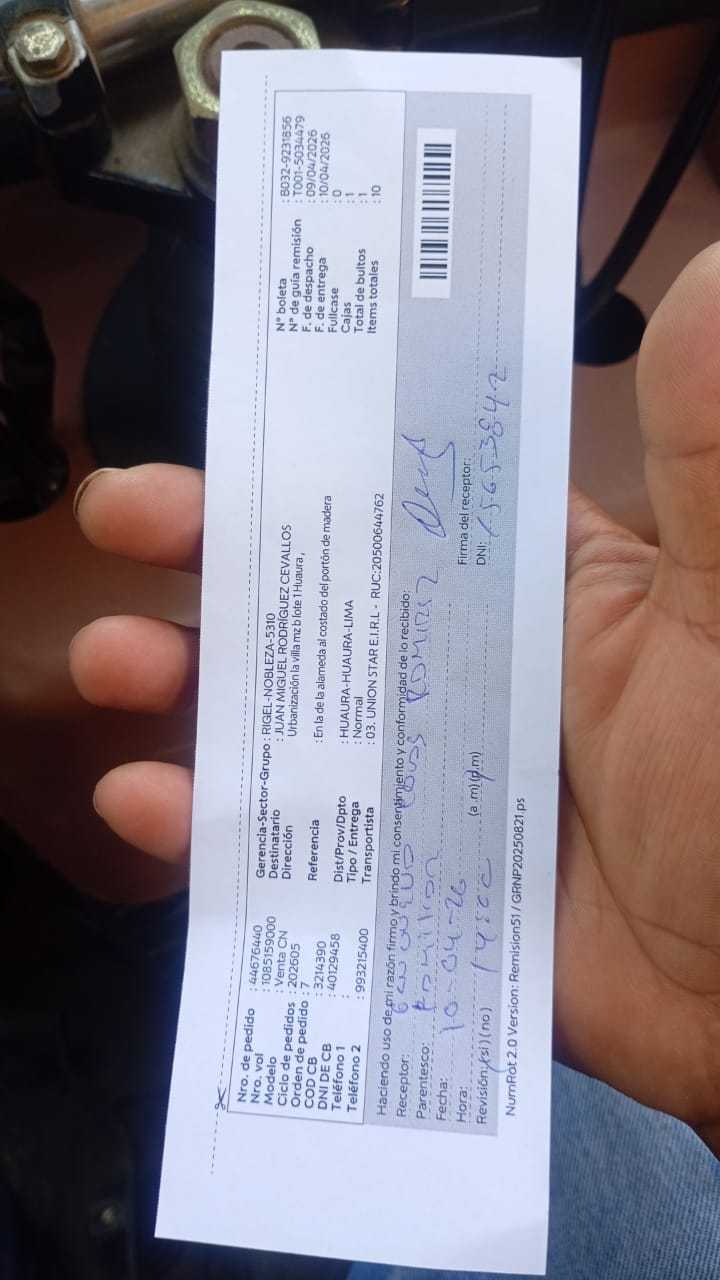 Nro. de pedido : 44676440
Nro. vol : 1085159000
Modelo : Venta CN
Ciclo de pedidos : 202605
Orden de pedido : 7
COD CB : 3214390
DNI DE CB : 40129458
Teléfono 1 :
Teléfono 2 : 993215400
Gerencia-Sector-Grupo : RIGEL-NOBLEZA-5310
Destinatario : JUAN MIGUEL RODRÍGUEZ CEVALLOS
Dirección : Urbanización la villa mz b lote 1 Huaura ,
Referencia : En la de la alameda al costado del portón de madera
Dist/Prov/Dpto : HUAURA-HUAURA-LIMA
Tipo / Entrega : Normal
Transportista : 03. UNION STAR E.I.R.L - RUC:20500644762
N° boleta : B032-9231856
N° de guía remisión : T001-5034479
F. de despacho : 09/04/2026
F. de entrega : 10/04/2026
Fullcase : 0
Cajas : 1
Total de bultos : 1
Items totales : 10
Haciendo uso de mi razón firmo y brindo mi consentimiento y conformidad de lo recibido:
Receptor:
Parentesco:
Fecha: 10-04-26
Hora: (a.m)(p.m)
Revisión: (si) (no)
Firma del receptor:
DNI:
NumRot 2.0 Version: Remision51 / GRNP20250821.ps